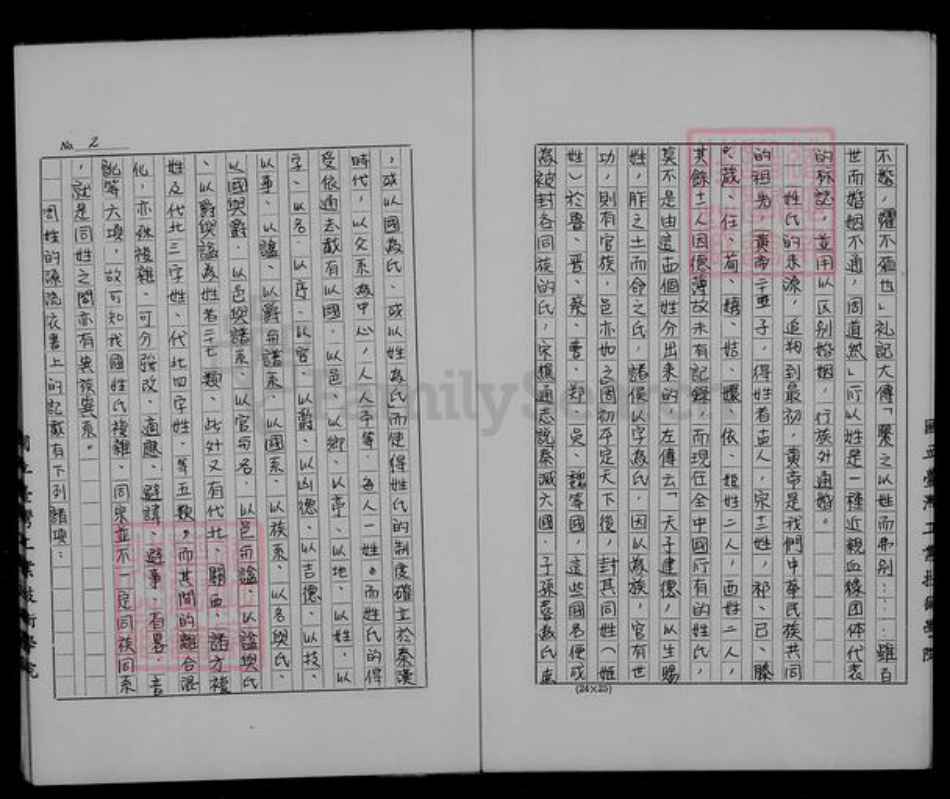 不娶,孀不殖也」礼記大傳「繫之以姓而弗別……雖百
世而婚姻不通,周道然」所以姓是一種近親血緣団体代表
的标誌,並用以区别婚姻,行族外通婚。
姓氏的来源,追朔到最初,黄帝是我們中華民族共同
的祖先,黄帝二十五子,得姓者十四人,宗十二姓,祁、己、滕
、葴、任、荀、嬉、姞、嬛、依、姬姓二人,酉姓二人,
其餘十一人因德薄故未有記錄,而現在全中國所有的姓氏,
莫不是由這十四個姓分出来的,左傳云「天子建德,以生賜
姓,胙之土而命之氏,諸侯以字為氏,因以為族,官有世
功,則有官族,邑亦如之周初平定天下後,封其同姓(姬
姓)於魯、晋、蔡、曹、郑、吳、魏等國,這些國名便成
為被封各同族的氏,宋樵通志說「秦滅六國,子孫
,或以國為氏、或以姓為氏而使得姓氏的制度確立於秦漢
時代,以父系為中心,人人平等、每人一姓。而姓氏的得
受依通志載有以國、以邑、以鄉、以亭、以地、以姓、以
字、以名、以序、以官、以爵、以凶德、以吉德、以技、
以事、以謚、以爵与譜系、以國系、以族系、以名與氏、
以國與爵、以邑與譜系、以官与名、以邑与謚、以謚與氏
、以爵與謚為姓者二十七類、此外又有代北、關西、諸方複
姓及代北三字姓、代北四字姓、等五類,而其間的離合混
化,亦殊複雜、可分強改、適應、避諱、避事、省畧、音
訛等六項,故可知我國姓氏複雜、同宗並不一定同族同系
,就是同姓之間亦有異族異系。
周姓的源流依書上的記載有下列諸項:
No. 2
(24×25)
國立臺灣工業技術學院
國立臺灣工業技術學院
FamilySearch